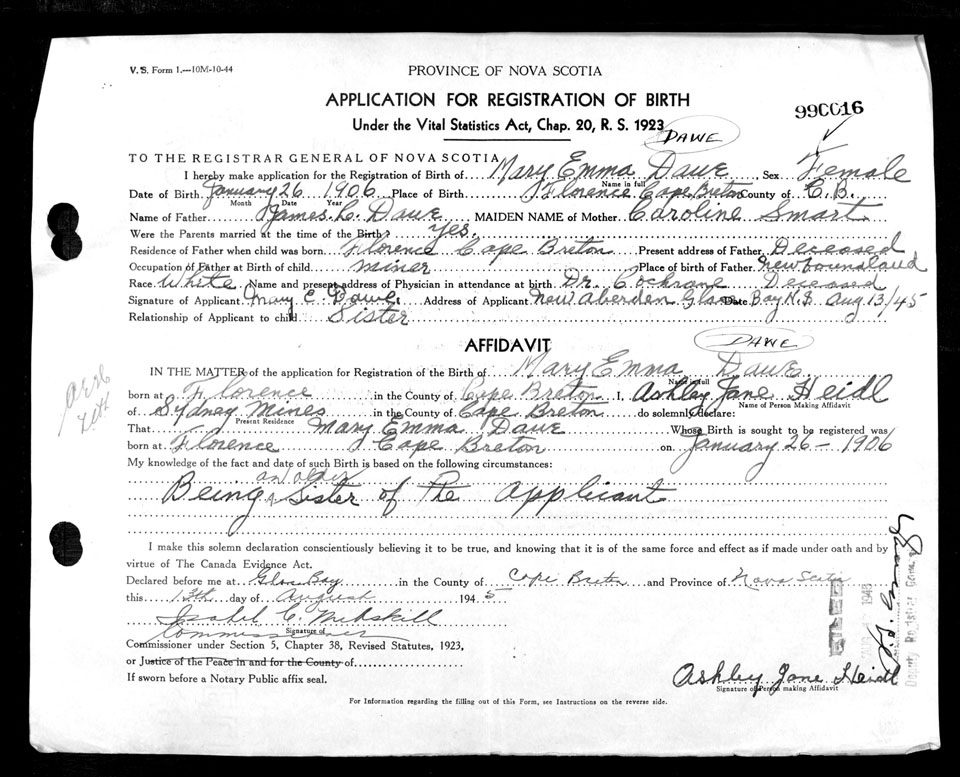 V. S. Form 1.—10M-10-44
PROVINCE OF NOVA SCOTIA
APPLICATION FOR REGISTRATION OF BIRTH
990016
Under the Vital Statistics Act, Chap. 20, R. S. 1923
DAWE
TO THE REGISTRAR GENERAL OF NOVA SCOTIA
I hereby make application for Registration of Birth of Mary Emma Dawe Sex Female
Name in full
Date of Birth January 26 1906 Place of Birth Florence Cape Breton County of C.B.
Month Date Year
Name of Father James L. Dawe MAIDEN NAME of Mother Caroline Smart
Were the Parents married at the time of the Birth? yes.
Residence of Father when child was born Florence Cape Breton Present address of Father Deceased
Occupation of Father at Birth of child miner Place of birth of Father Newfoundland
Race White Name and present address of Physician in attendance at birth Dr. Cochrane Deceased
Signature of Applicant Mary E. Dawe. Address of Applicant New Aberdeen Glace Bay N.S. Date Aug 13/45
Relationship of Applicant to child Sister
AFFIDAVIT
DAWE
IN THE MATTER of the application for Registration of the Birth of Mary Emma Dawe
Name in full
born at Florence in the County of Cape Breton I, Ashley Jane Heidl
Name of Person Making Affidavit
of Sydney Mines in the County of Cape Breton do solemnly declare:
Present Residence
That Mary Emma Dawe Whose Birth is sought to be registered was
born at Florence Cape Breton on January 26 - 1906
My knowledge of the fact and date of such Birth is based on the following circumstances:
an older
Being Sister of the applicant
I make this solemn declaration conscientiously believing it to be true, and knowing that it is of the same force and effect as if made under oath and by
virtue of The Canada Evidence Act.
Declared before me at Glace Bay in the County of Cape Breton and Province of Nova Scotia
this 13th day of August 1945
Isabel C.
Commissioner
Signature of
Commissioner under Section 5, Chapter 38, Revised Statutes, 1923,
or Justice of the Peace in and for the County of
If sworn before a Notary Public affix seal.
Ashley Jane Heidl
Signature of Person making Affidavit
For Information regarding the filling out of this Form, see Instructions on the reverse side.